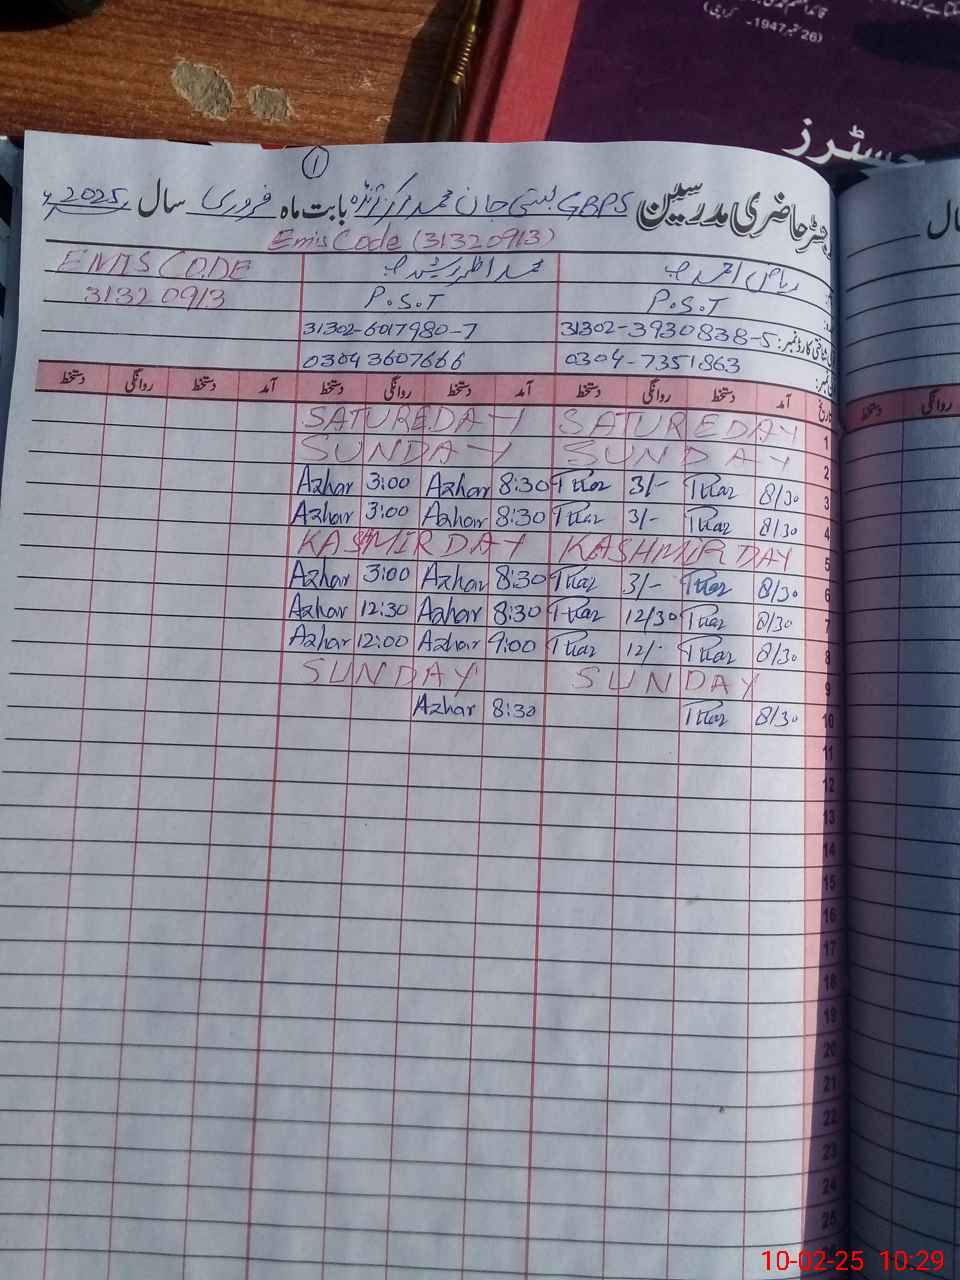 (26 ستمبر 1947ء - کراچی)
جسٹرز
1
رجسٹر حاضری مدرسین GBPS بستی جان محمد بابت ماہ فروری سال 2025ء
Emis Code (31320913)
ریاض احمد محمد اظہر رشید EMIS CODE
P.S.T P.S.T 31320913
31302-3930838-5 31302-6017980-7
0304-7351863 03043607666
تاریخ آمد دستخط روانگی دستخط آمد دستخط روانگی دستخط آمد دستخط روانگی دستخط
1 SATUREDAY SATUREDAY
2 SUNDAY SUNDAY
3 8/30 3/- 8:30 Azhar 3:00 Azhar
4 8/30 3/- 8:30 Azhar 3:00 Azhar
5 KASHMIR DAY KASMIR DAY
6 8/30 3/- 8:30 Azhar 3:00 Azhar
7 8/30 12/30 8:30 Azhar 12:30 Azhar
8 8/30 12/- 9:00 Azhar 12:00 Azhar
9 SUNDAY SUNDAY
10 8/30 8:30 Azhar
11
12
13
14
15
16
17
18
19
20
21
22
23
24
25
روانگی دستخط
10-02-25 10:29